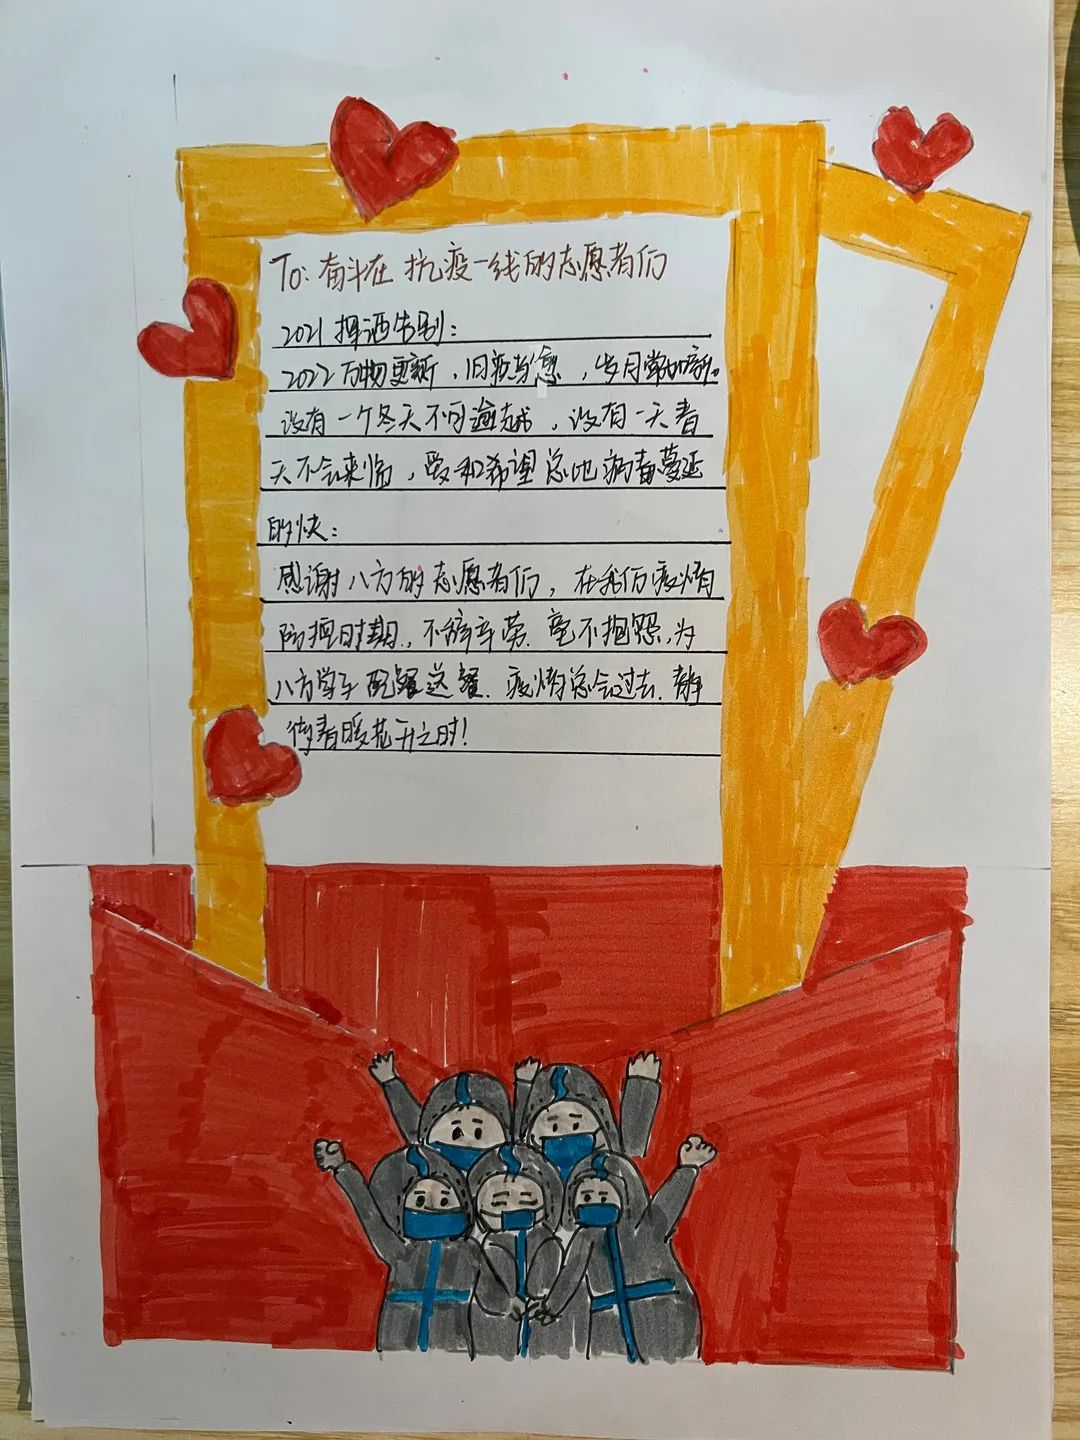 To: 奋斗在抗疫一线的志愿者们
2021 挥洒告别：
2022 万物更新，旧疾当愈，岁月常如新。
没有一个冬天不可逾越，没有一天春
天不会来临，爱和希望总比病毒蔓延
的快：
感谢八方的志愿者们，在我们疫情
防控时期，不辞辛劳.毫不抱怨，为
八方学子配餐送餐.疫情总会过去.静
待春暖花开之时！